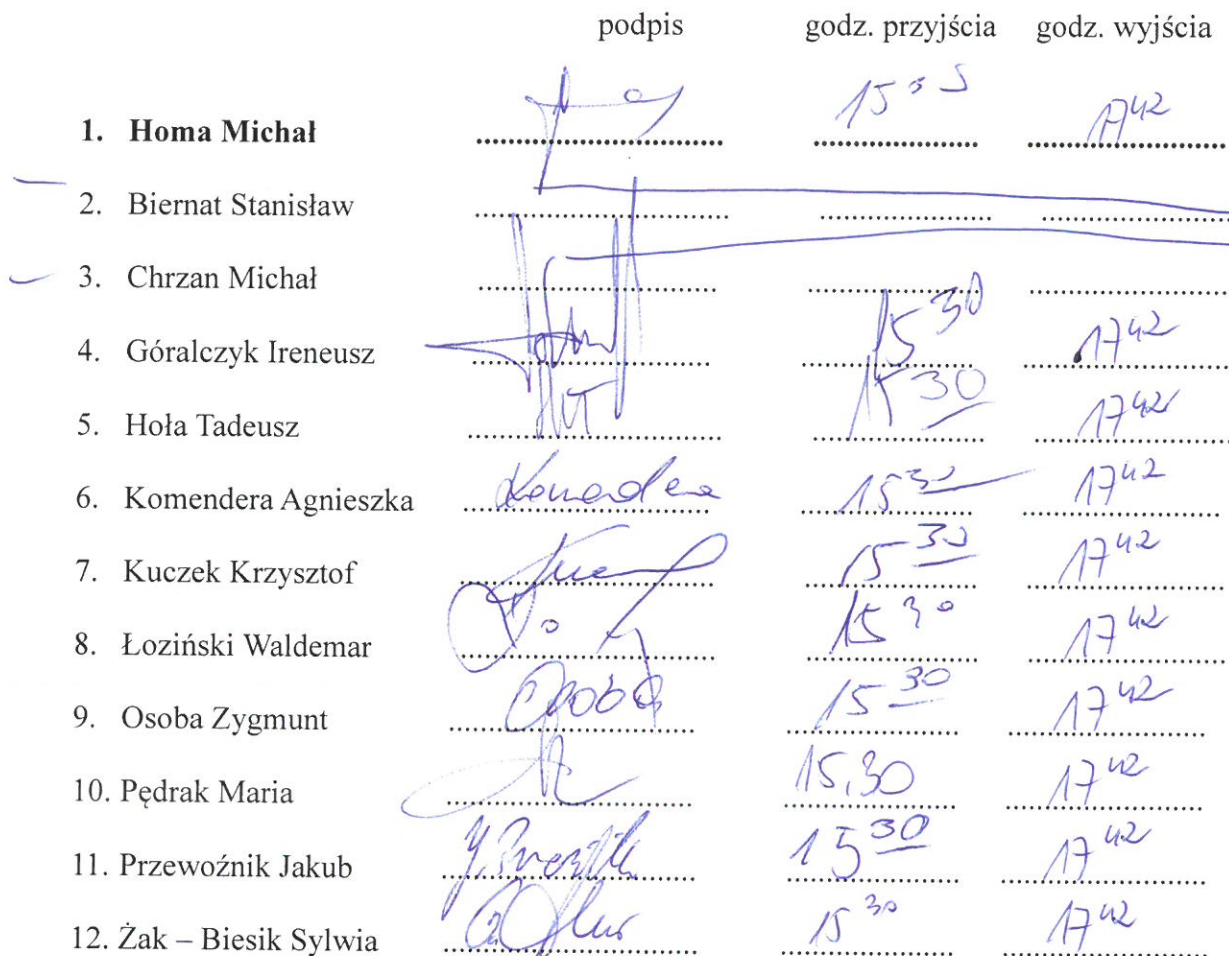 podpis godz. przyjścia godz. wyjścia
1. Homa Michał 17 42
2. Biernat Stanisław
3. Chrzan Michał
4. Góralczyk Ireneusz 15 30 17 42
5. Hoła Tadeusz 15 30 17 42
6. Komendera Agnieszka 15 30 17 42
7. Kuczek Krzysztof 15 30 17 42
8. Łoziński Waldemar 15 30 17 42
9. Osoba Zygmunt Osoba 15 30 17 42
10. Pędrak Maria 15,30 17 42
11. Przewoźnik Jakub 15 30 17 42
12. Żak – Biesik Sylwia 15 30 17 42